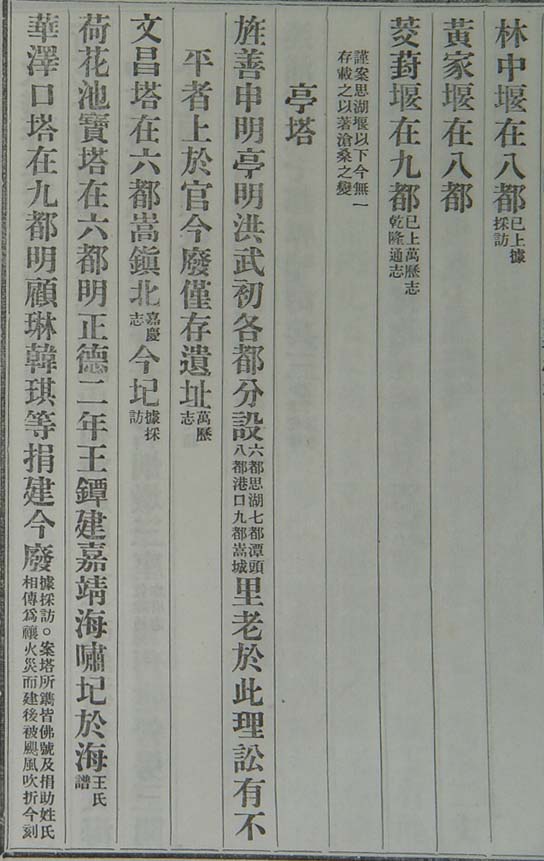 林中堰在八都已上據採訪
黃家堰在八都
茭葑堰在九都已上萬歷志乾隆通志
謹案思湖堰以下今無一存載之以著滄桑之變
亭塔
旌善申明亭明洪武初各都分設六都思湖七都潭頭八都港口九都嵩城里老於此理訟有不
平者上於官今廢僅存遺址萬歷志
文昌塔在六都嵩鎮北嘉慶志今圮據採訪
荷花池寶塔在六都明正德二年王鐔建嘉靖海嘯圮於海王氏譜
華澤口塔在九都明顧琳韓琪等捐建今廢據採訪○案塔所鐫皆佛號及捐助姓氏相傳爲禳火災而建後被颶風吹折今刻